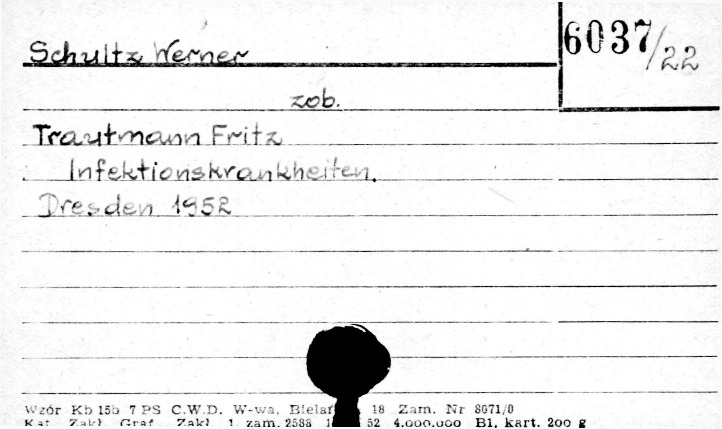 Schultz Werner 6037/22
zob.
Trautmann Fritz
Infektionskrankheiten.
Dresden 1952
Wzór Kb 15b 7 PS C.W.D. W-wa, 18 Zam. Nr 8671/0
Kat. Zakł. Graf. Zakł. 1. zam. 2588 52 4.000.000 B1. kart. 200 g